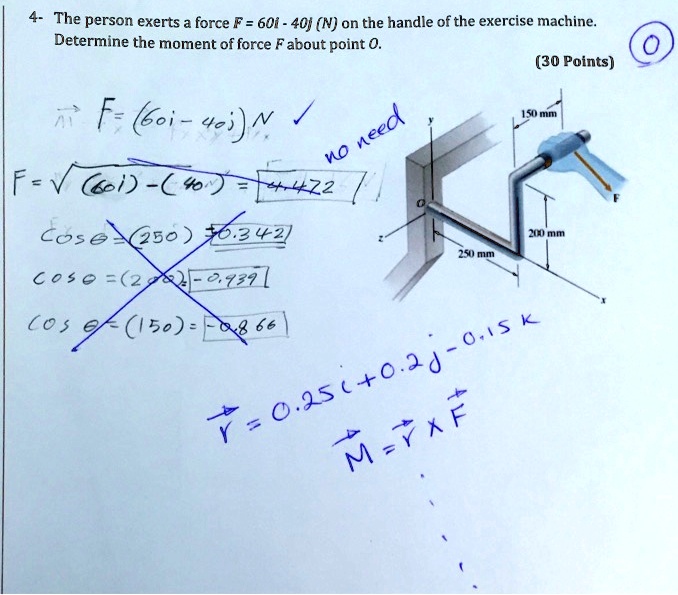 4- The person exerts a force F = 60i - 40j (N) on the handle of the exercise machine.
Determine the moment of force F about point O.
(30 Points)
0
F = (60i - 40j) N ✓
no need
F = √(60i) - (40j) = 4.472
Cosθ = (250) = 0.342
cosθ = (200) = -0.939
Cosθ = (150) = -0.866
150 mm
y
O
F
z
200 mm
250 mm
x
r = 0.25i + 0.2j - 0.15k
M = r x F